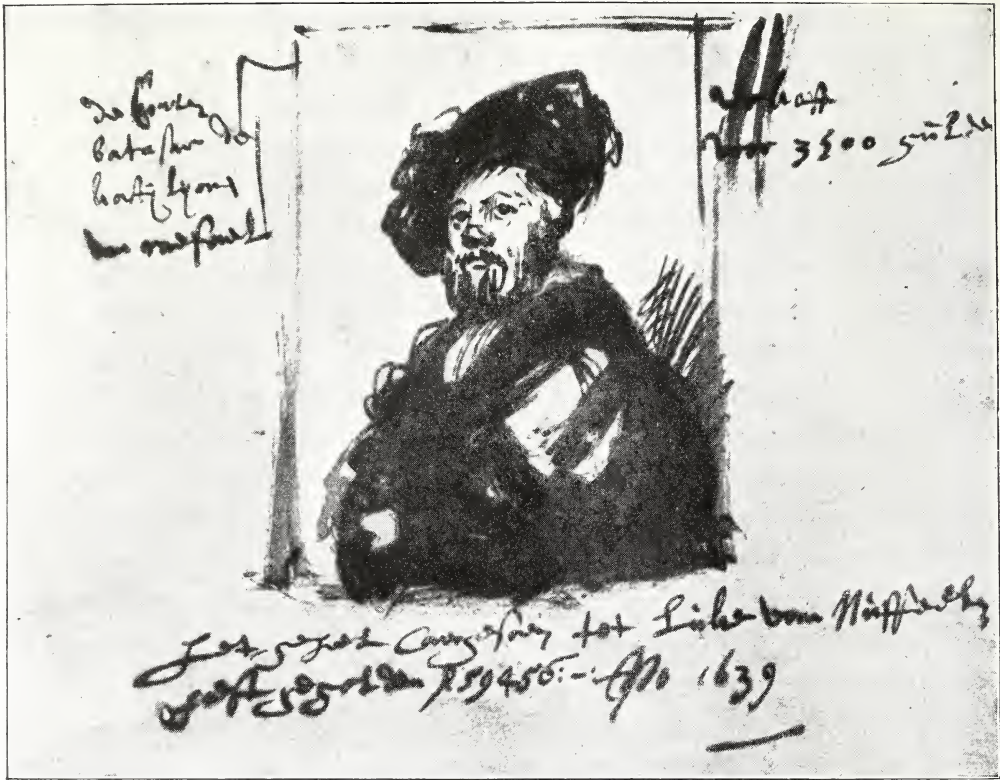 de Conte
batasar de
kastijlyone
van rafael
verkoft
voor 3500 gulde
het geheel caergesoen tot Luke van Nuffeelen
heeft gegolden f 59456:- Ano 1639